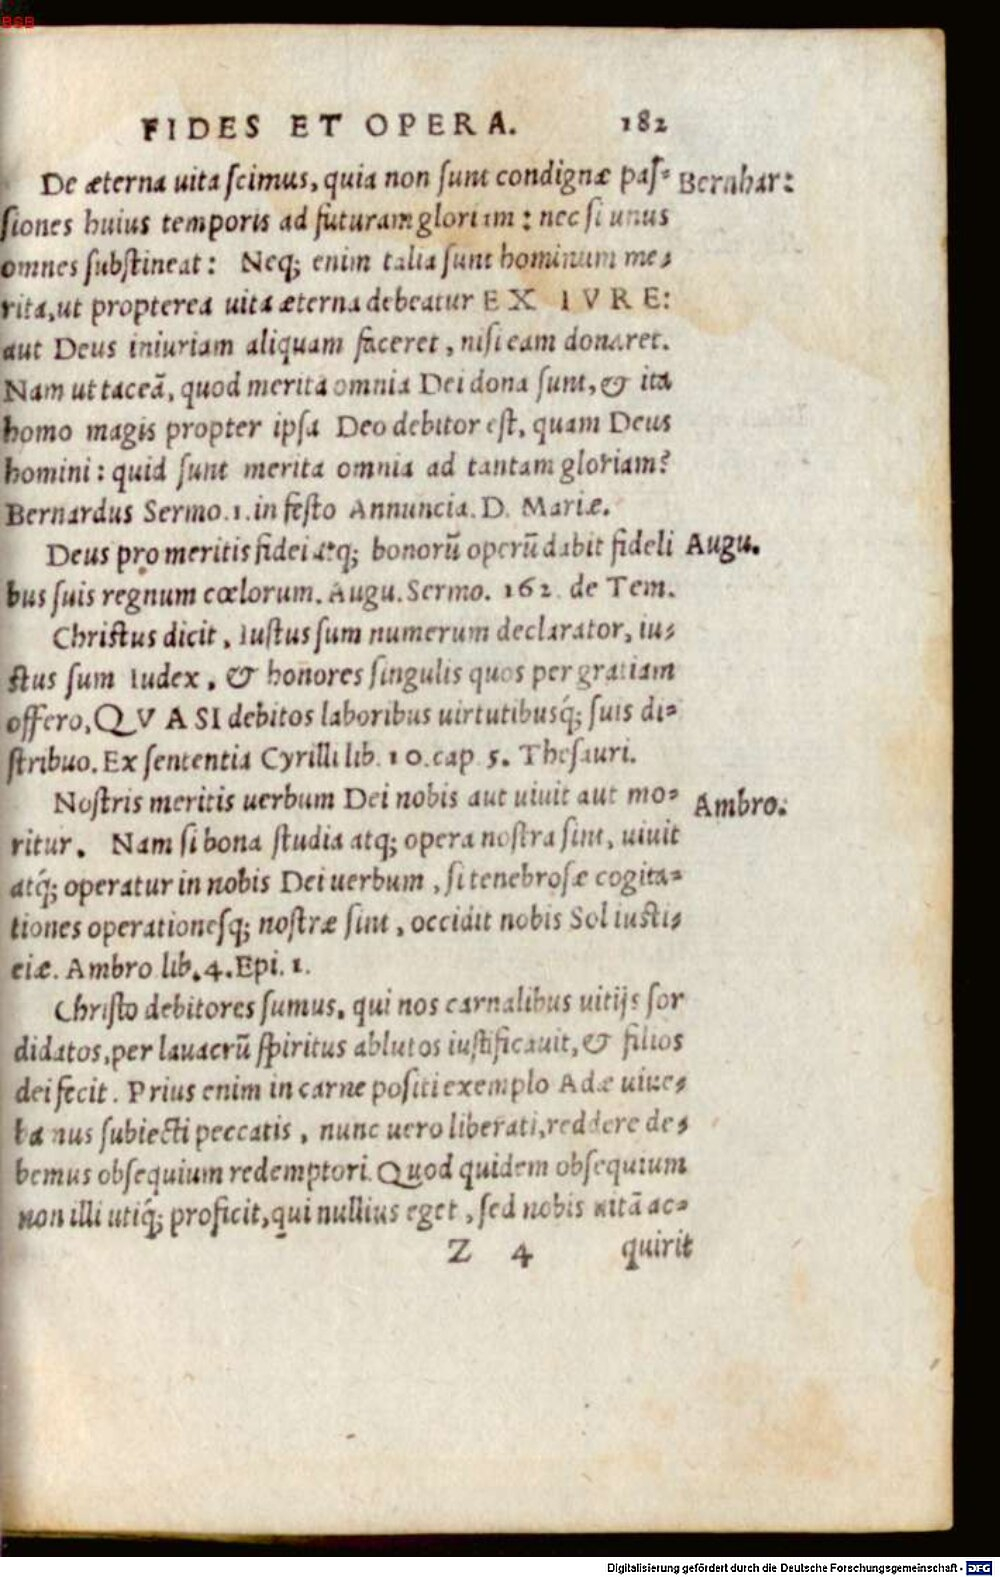 BSB
FIDES ET OPERA. 182
De æterna uita scimus, quia non sunt condignæ pas- Bernhar:
siones huius temporis ad futuram gloriam: nec si unus
omnes substineat: Neq; enim talia sunt hominum me-
rita, ut propterea uita æterna debeatur EX IVRE:
aut Deus iniuriam aliquam faceret, nisi eam donaret.
Nam ut taceã, quod merita omnia Dei dona sunt, & ita
homo magis propter ipsa Deo debitor est, quam Deus
homini: quid sunt merita omnia ad tantam gloriam?
Bernardus Sermo. 1. in festo Annuncia. D. Mariæ.
Deus pro meritis fidei atq; bonorũ operũ dabit fideli Augu.
bus suis regnum cœlorum. Augu. Sermo. 162. de Tem.
Christus dicit, Iustus sum numerum declarator, iu-
stus sum Iudex, & honores singulis quos per gratiam
offero, QVASI debitos laboribus uirtutibusq́; suis di-
stribuo. Ex sententia Cyrilli lib. 10. cap. 5. Thesauri.
Nostris meritis uerbum Dei nobis aut uiuit aut mo- Ambro.
ritur. Nam si bona studia atq; opera nostra sint, uiuit
atq́; operatur in nobis Dei uerbum, si tenebrosæ cogita-
tiones operationesq; nostræ sint, occidit nobis Sol iusti-
ciæ. Ambro lib. 4. Epi. 1.
Christo debitores sumus, qui nos carnalibus uitijs sor
didatos, per lauacrũ spiritus ablutos iustificauit, & filios
dei fecit. Prius enim in carne positi exemplo Adæ uiue-
ba nus subiecti peccatis, nunc uero liberati, reddere de-
bemus obsequium redemptori. Quod quidem obsequium
non illi utiq́; proficit, qui nullius eget, sed nobis uitã ac-
Z 4 quirit
Digitalisierung gefördert durch die Deutsche Forschungsgemeinschaft - DFG